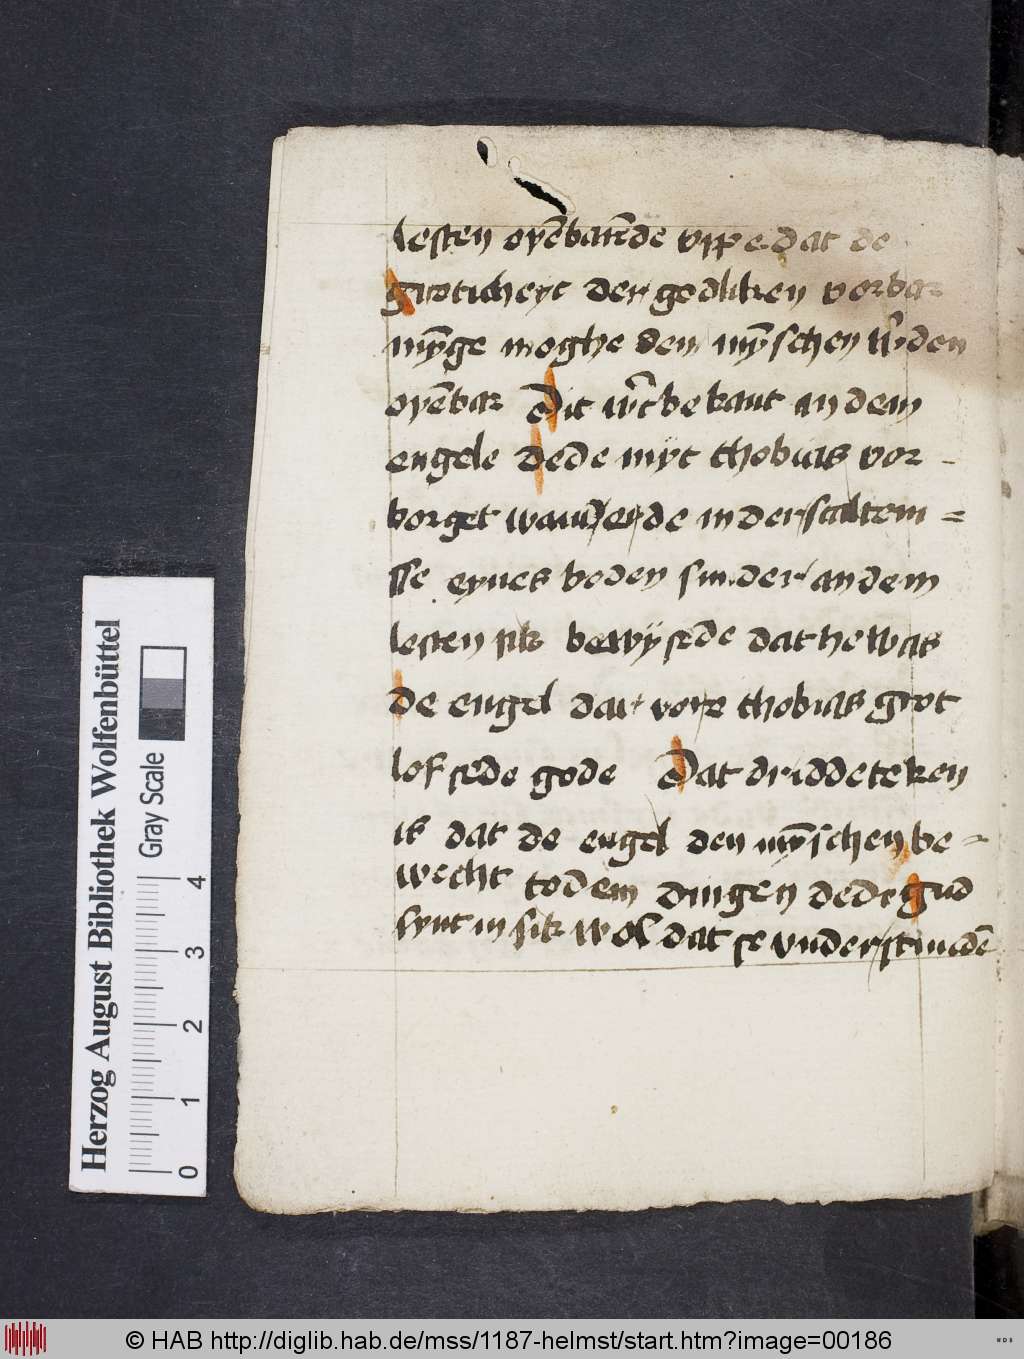 lesten opēbarēde vppe dat de
groticheyt der godliken vorbar
mȳge moghe dem mȳschen w'den
opēbar Dit w't bekant an dem
engele dede myt thobias vor-
borget wanderde in der scaltem=
sse eynes boden sunder an dem
lesten sik bewysede dat he was
de engel dar vore thobias grot
lof sede gode Dat dridde teken
is dat de engel den mȳschen be-
wecht to dem dingen dede gud
synt in sik wol dat se vnderstundē
Herzog August Bibliothek Wolfenbüttel
Gray Scale
0 1 2 3 4
© HAB http://diglib.hab.de/mss/1187-helmst/start.htm?image=00186
WDB